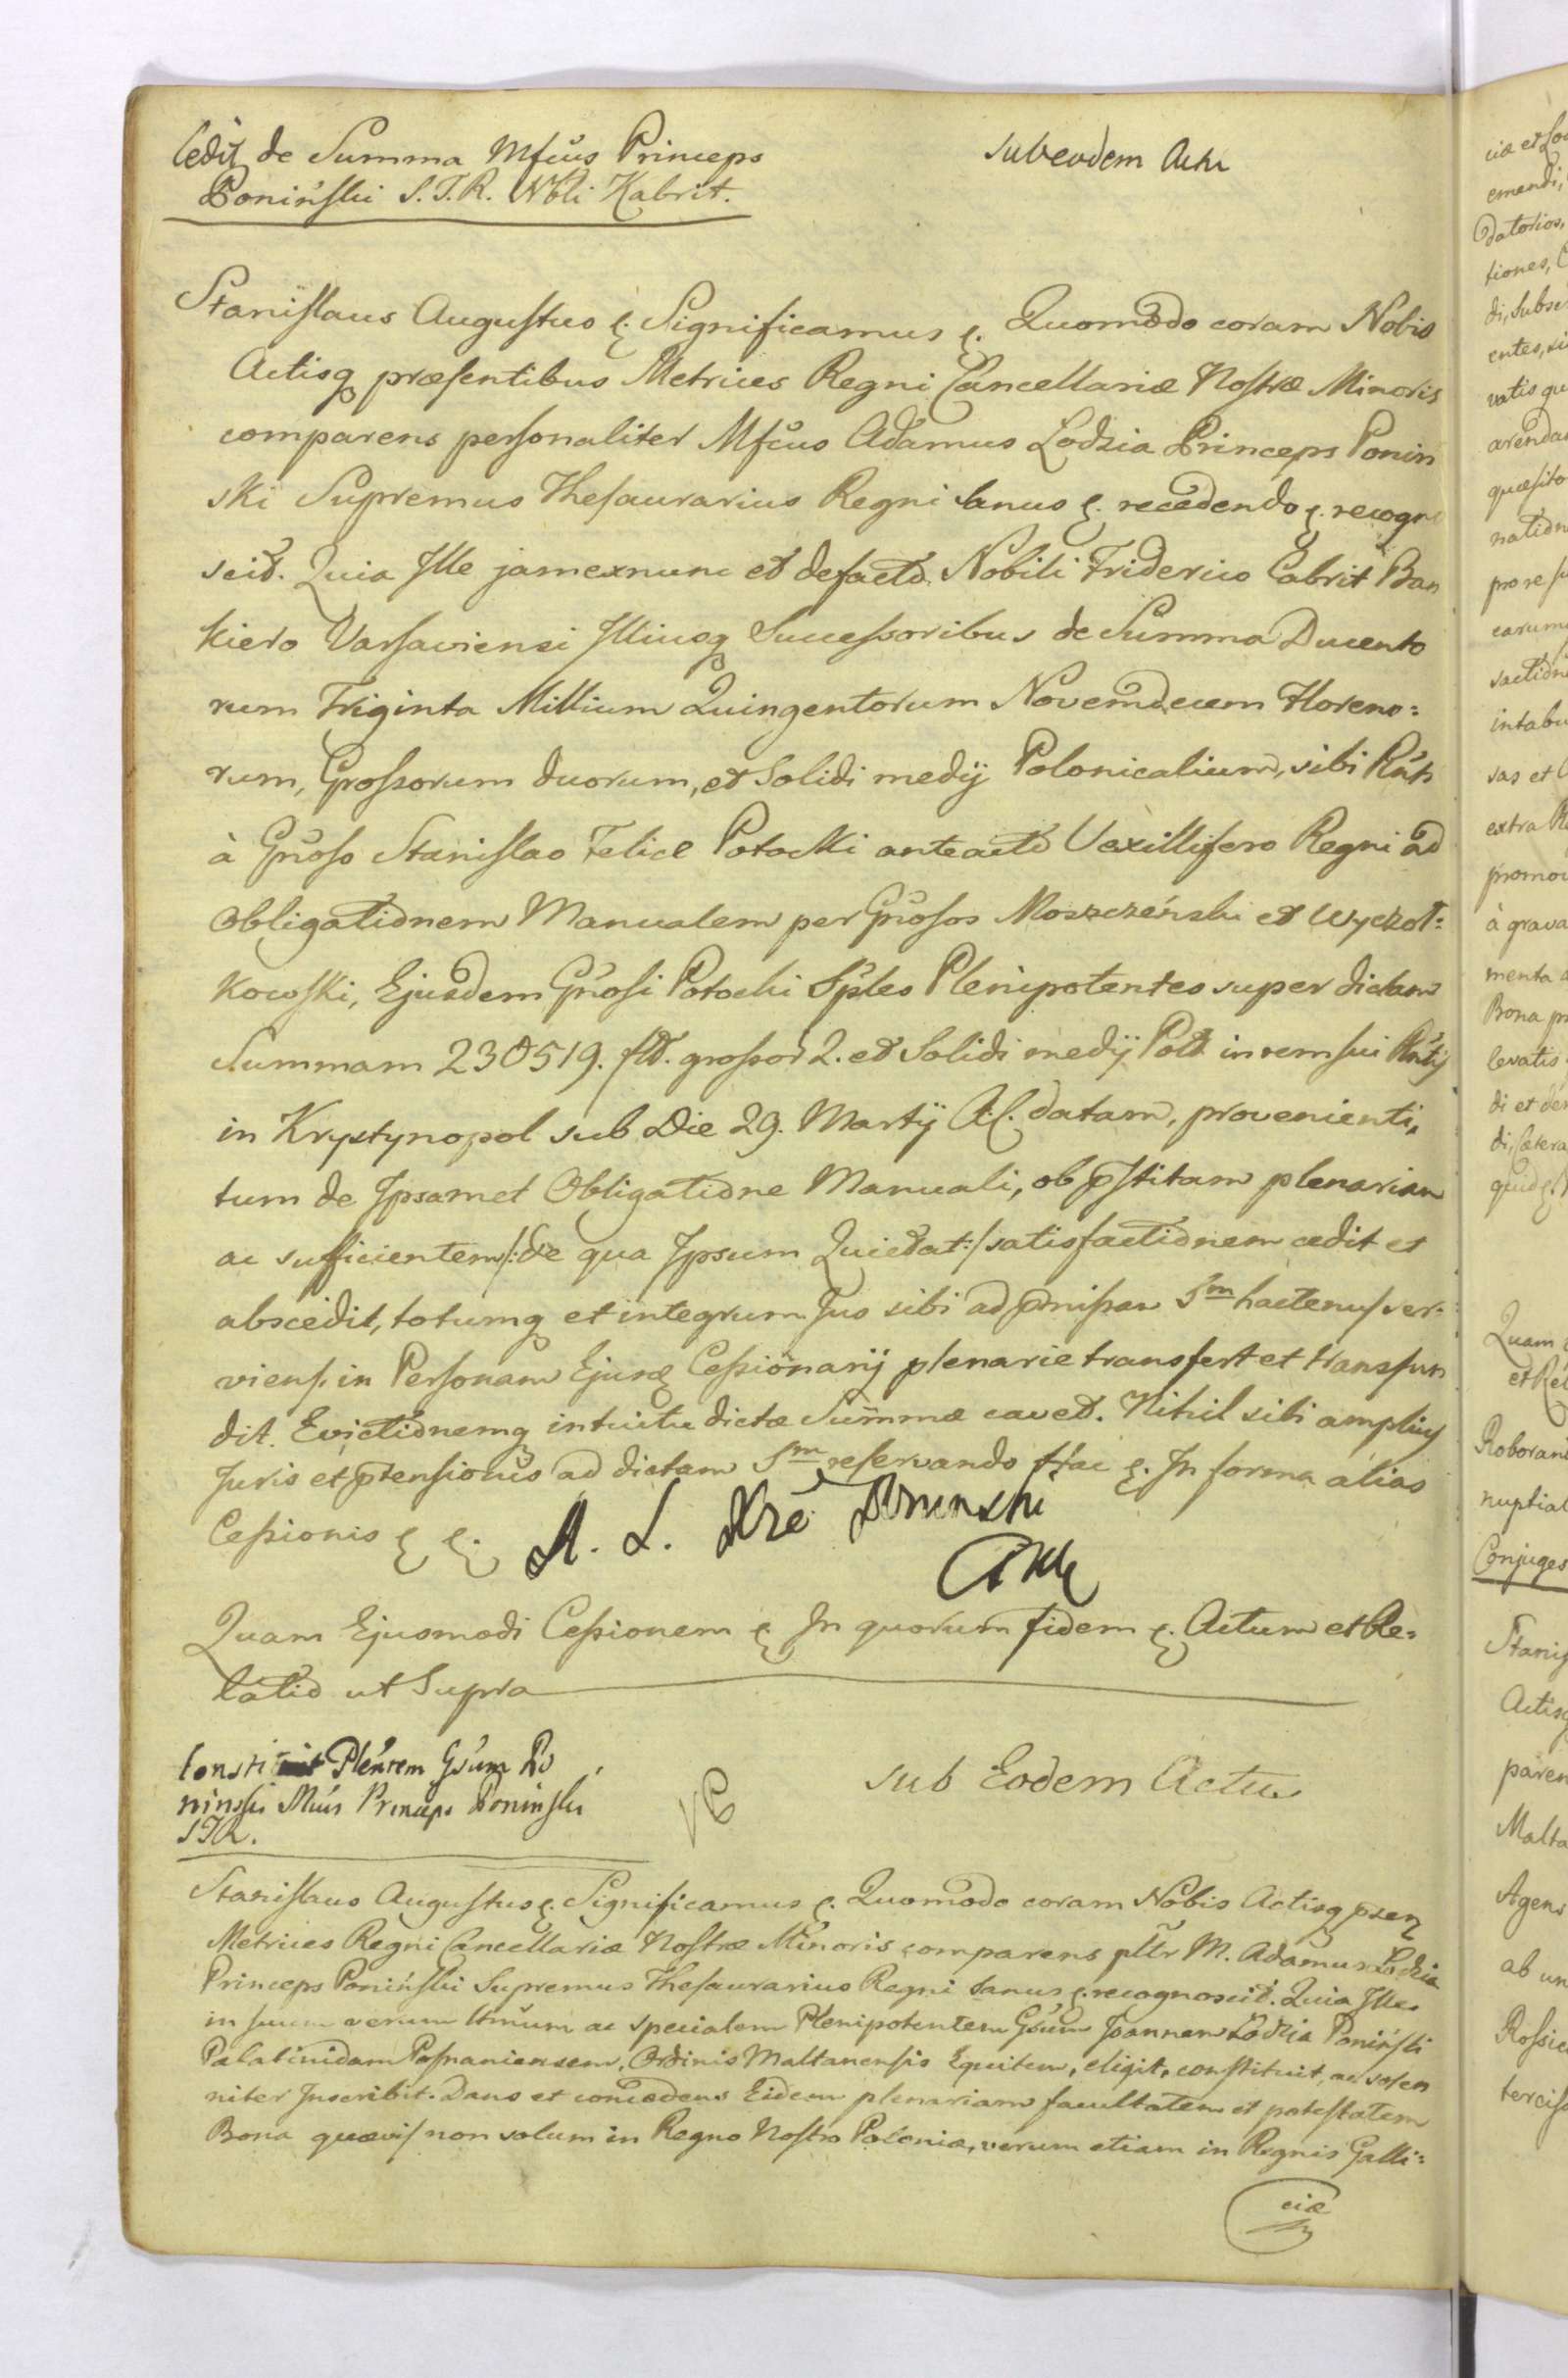 Cedit de Summa Mfcus Princeps
Poniński S.T.R. Nbli Kabrit.
sub eodem Actu
Stanislaus Augustus &. Significamus &. Quomodo coram Nobis
Actisq præsentibus Metrices Regni Cancellariæ Nostræ Minoris
comparens personaliter Mfcus Adamus Lodzia Princeps Ponin
ski Supremus Thesaurarius Regni Sanus &. recedendo &. recogno
scit. Quia Ille jam exnunc et defacto Nobili Friderico Cabrit Ban
kiero Varsaviensi Illiusq Successoribus de Summa Ducento
rum Triginta Millium Quingentorum Novemdecem Floreno:
rum, Grossorum duorum, et Solidi medij Polonicalium, sibi Rńti
à Gnoso Stanislao Felice Potocki anteacto Vexillifero Regni ad
Obligationem Manualem per Gnosos Moszczeński et Wyczoł:
kowski, Ejusdem Gnosi Potocki Sples Plenipotentes super dictam
Summam 230519. fl. grossor 2. et Solidi medij Pol in rem sui Rńtis
in Krystynopol sub Die 29. Martij A.C. datam, provenienti,
tum de Ipsamet Obligatione Manuali, ob pstitam plenariam
ac sufficientem /: de qua Ipsum Quietat :/ satisfactionem cedit et
abscedit, totumq et integrum Jus sibi ad pmissam Sm hactenus ser:
viens, in Personam Ejusd Cessionarij plenarie transfert et transfun
dit. Evictionemq intuitu dictæ Summæ cavet. Nihil sibi amplius
Juris et ptensionis ad dictam Sm reservando Hac &. In forma alias
Cessionis & &. A. L. Xże Poninski
Quam Ejusmodi Cessionem &. In quorum fidem &. Actum et Re:
latio ut Supra
Consti Pleńtem Gsum Po
ninski Mcus Princeps Poninski
STR.
sub Eodem Actu
Stanislaus Augustus &. Significamus &. Quomodo coram Nobis Actisq psen
Metrices Regni Cancellariæ Nostræ Minoris comparens pltr M. Adamus Lodzia
Princeps Poniński Supremus Thesaurarius Regni Sanus &. recognoscit. Quia Ille
in suum verum ltmum ac specialem Plenipotentem Gsum Joannem Lodzia Poniński
Palatinidam Posnaniensem, Ordinis Maltanensis Equitem, eligit, constituit, ac solen
niter Inscribit. Dans et concedens Eidem plenariam facultatem et potestatem
Bona quævis non solum in Regno Nostro Poloniæ, verum etiam in Regnis Galli:
ciæ